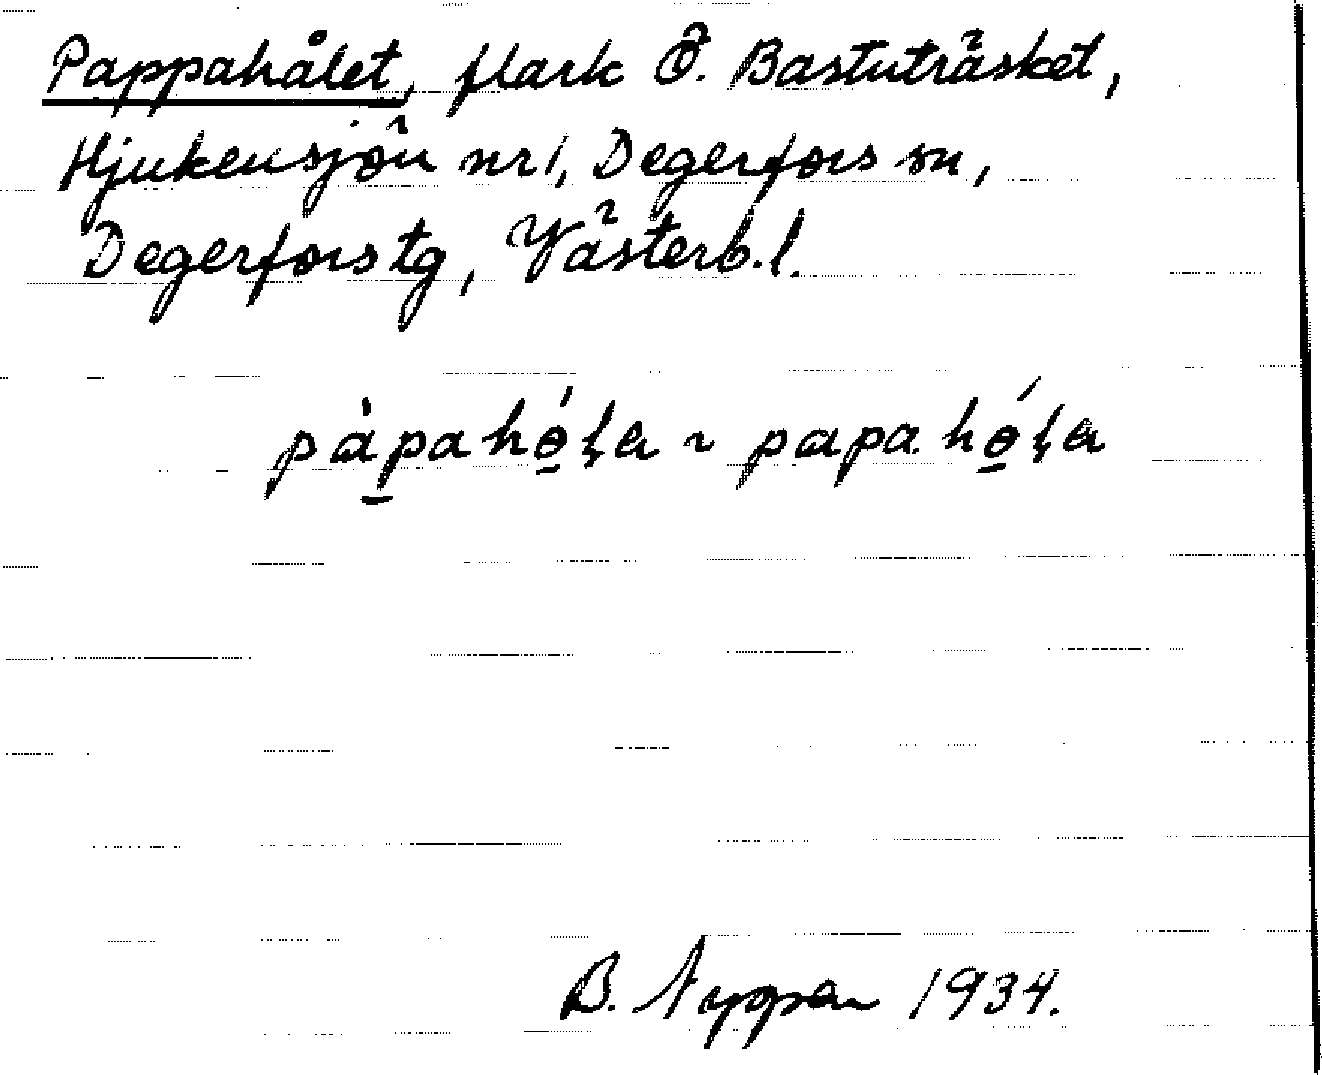 Pappahålet, flark Ö. Bastuträsket,
Hjukensjön nr 1, Degerfors sn,
Degerfors tg, Västerb. l.
pàpahó̱ḷa ~ papahó̱ḷa
B. Nyman 1934.